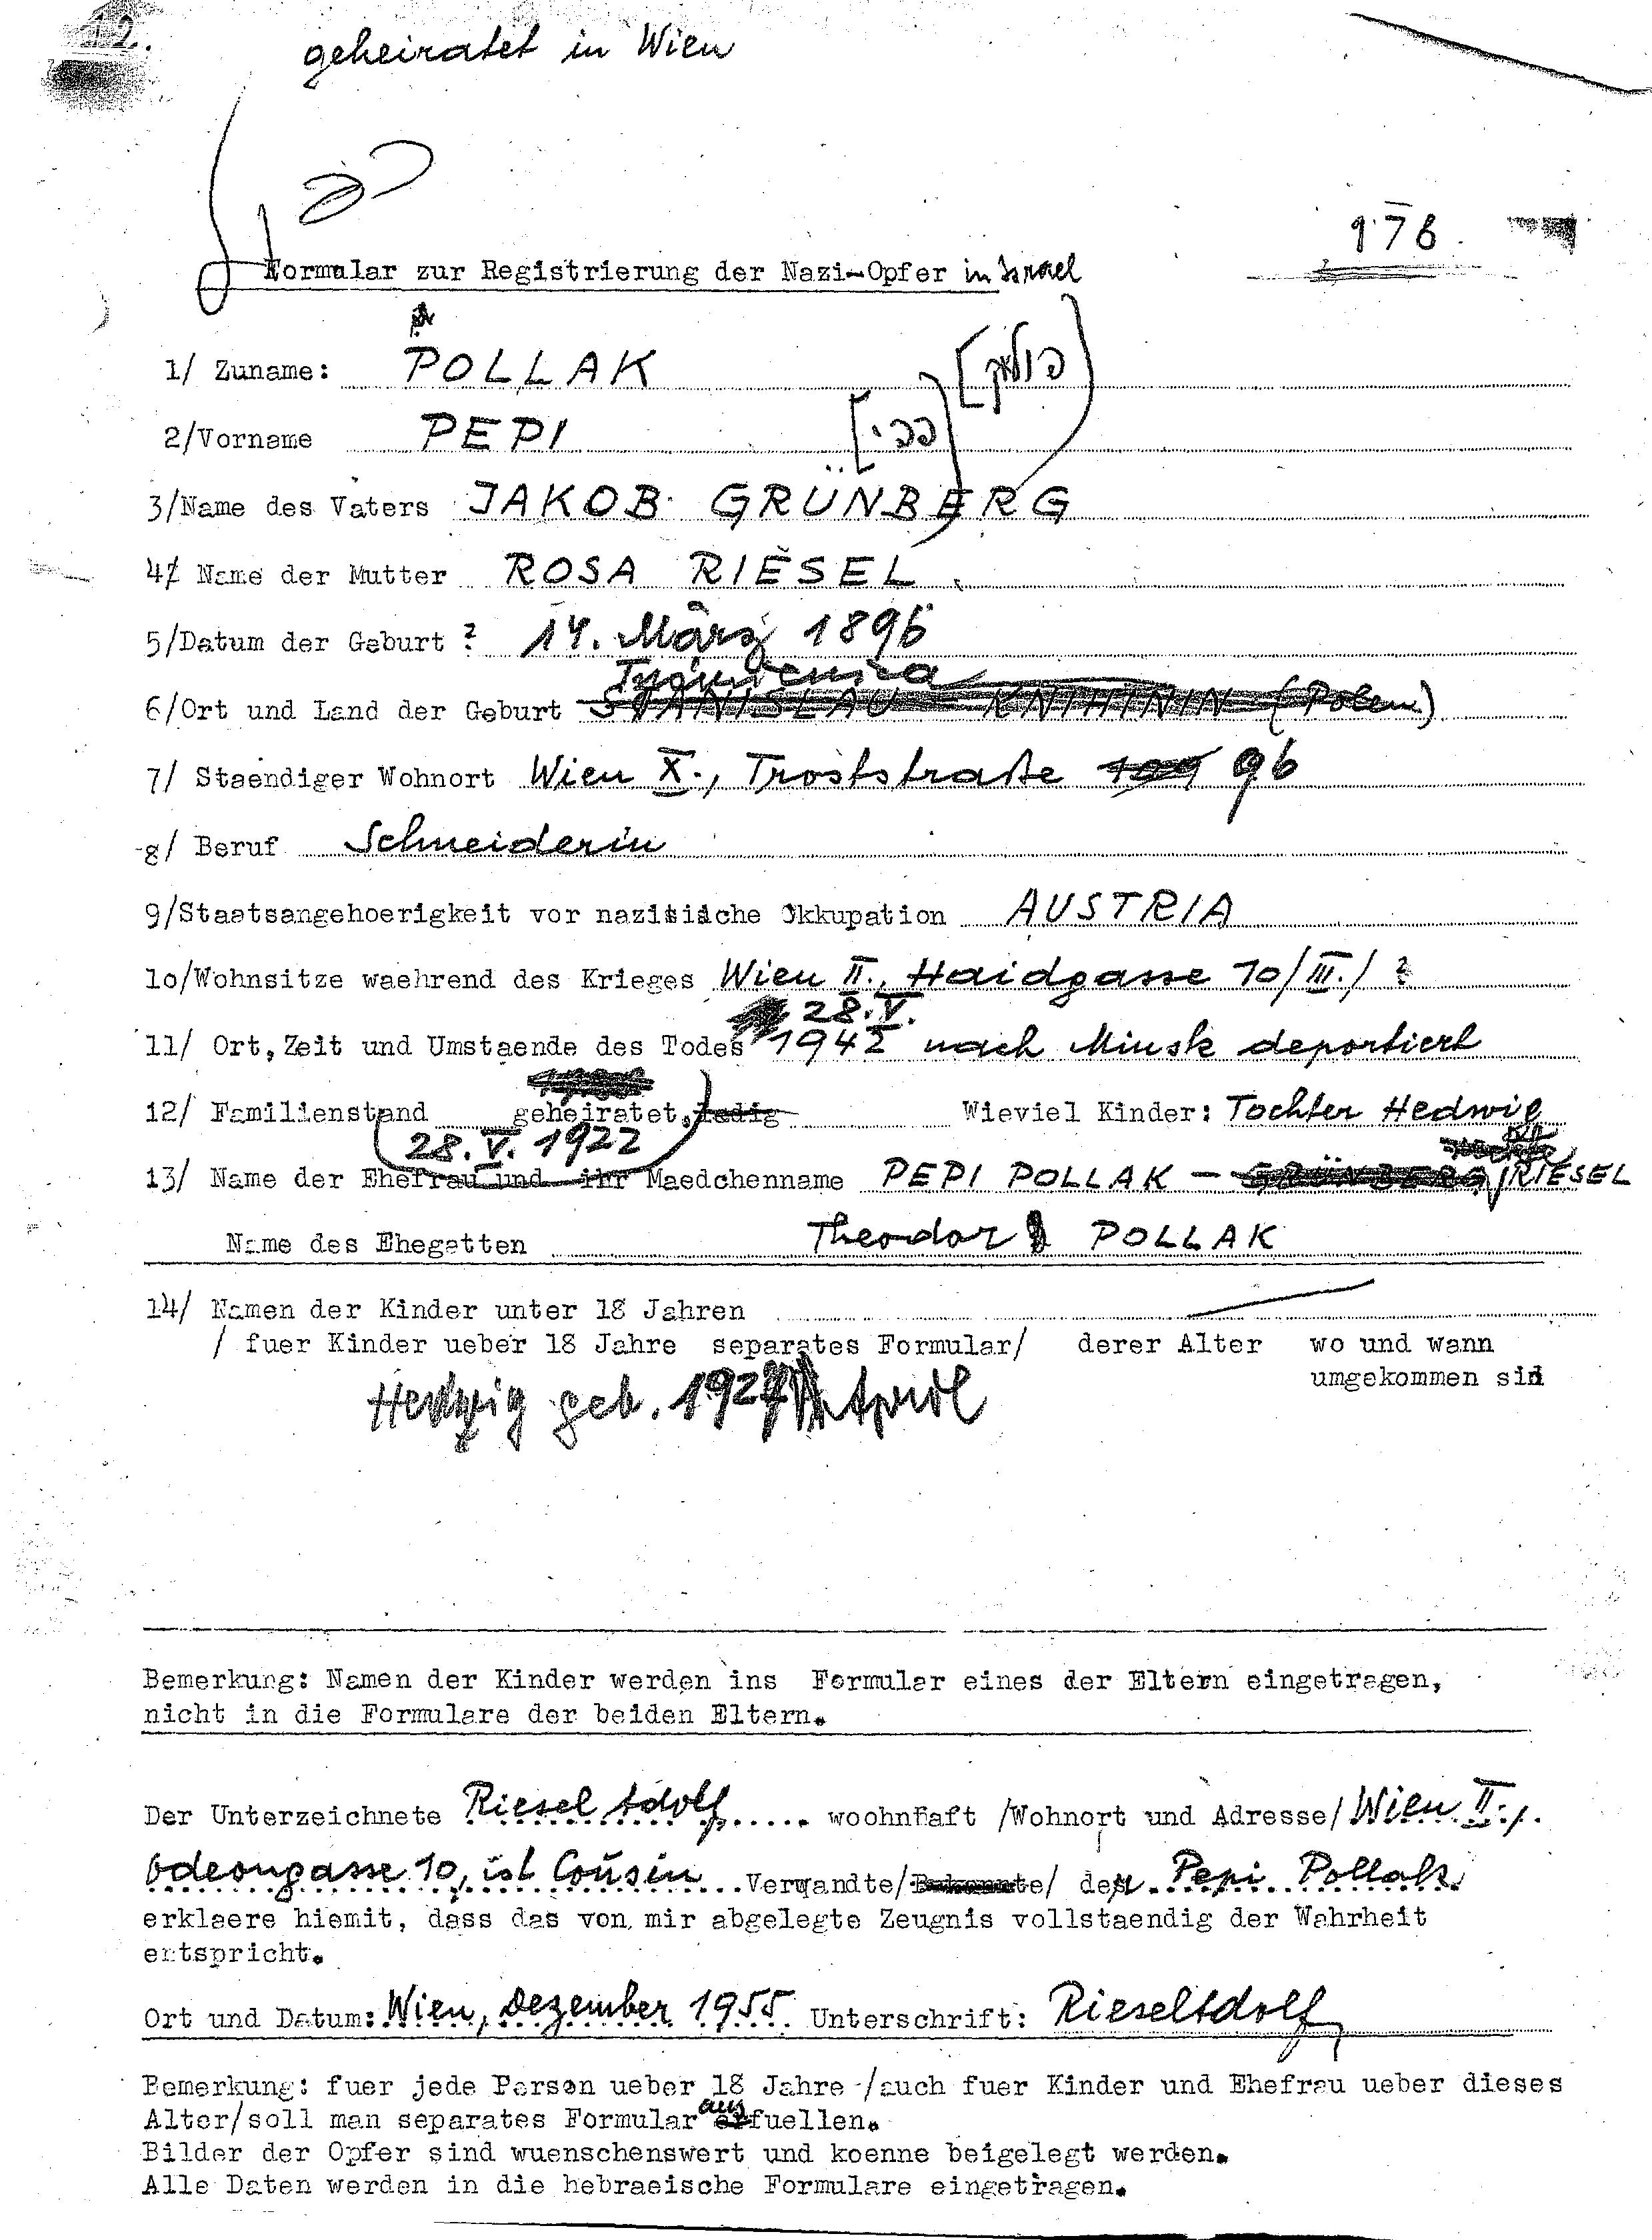 12.
geheiratet in Wien
176
Formular zur Registrierung der Nazi-Opfer in Israel
1/ Zuname: POLLAK [פולאק]
2/Vorname PEPI [פפי]
3/Name des Vaters JAKOB GRÜNBERG
4/ Name der Mutter ROSA RIESEL
5/Datum der Geburt ? 14. März 1896
6/Ort und Land der Geburt STANISLAU KNIHININ (Polen)
7/ Staendiger Wohnort Wien X., Troststraße 109 96
8/ Beruf Schneiderin
9/Staatsangehoerigkeit vor nazisische Okkupation AUSTRIA
10/Wohnsitze waehrend des Krieges Wien II., Haidgasse 10/III./ ?
28.V.
11/ Ort, Zeit und Umstaende des Todes 1942 nach Minsk deportiert
12/ Familienstand geheiratet, ledig Wieviel Kinder: Tochter Hedwig
28. V. 1922
13/ Name der Ehefrau und ihr Maedchenname PEPI POLLAK – GRÜNBERG/RIESEL
Name des Ehegatten Theodor POLLAK
14/ Namen der Kinder unter 18 Jahren
/ fuer Kinder ueber 18 Jahre separates Formular/ derer Alter wo und wann
umgekommen sind
Hedwig geb. 1924 April
Bemerkung: Namen der Kinder werden ins Formular eines der Eltern eingetragen,
nicht in die Formulare der beiden Eltern.
Der Unterzeichnete Riesel Adolf woohnhaft /Wohnort und Adresse/ Wien II.,
Odeongasse 10, ist Cousin Verwandte/Bekannte/ der Pepi Pollak
erklaere hiemit, dass das von mir abgelegte Zeugnis vollstaendig der Wahrheit
entspricht.
Ort und Datum: Wien, Dezember 1955 Unterschrift: Riesel Adolf
Bemerkung: fuer jede Person ueber 18 Jahre /auch fuer Kinder und Ehefrau ueber dieses
Alter/soll man separates Formular ausfuellen.
Bilder der Opfer sind wuenschenswert und koenne beigelegt werden.
Alle Daten werden in die hebraeische Formulare eingetragen.